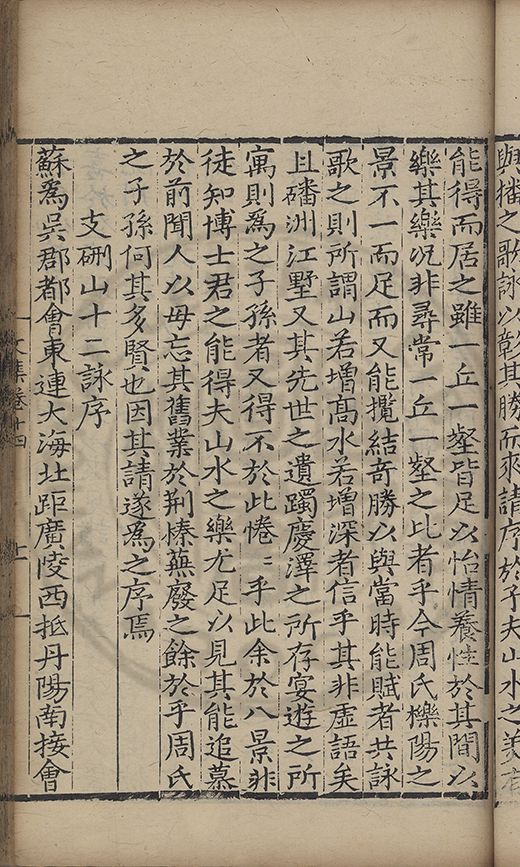 與播之歌詠以彰其勝而來請序於予夫山水之美有
能得而居之雖一丘一壑皆足以怡情養性於其間以
樂其樂况非尋常一丘一壑之比者乎今周氏櫟陽之
景不一而足而又能攬結奇勝以與當時能賦者共詠
歌之則所謂山若增髙水若增深者信乎其非虚語矣
且磻洲江墅又其先世之遺躅慶澤之所存宴遊之所
寓則為之子孫者又得不於此惓〻乎此余於八景非
徒知博士君之能得夫山水之樂尤足以見其能追慕
於前聞人以毋忘其舊業於荆榛蕪廢之餘於乎周氏
之子孫何其多賢也因其請遂為之序焉
支硎山十二詠序
蘇為吳郡都會東連大海北距廣陵西抵丹陽南接會
文集卷十四
十一